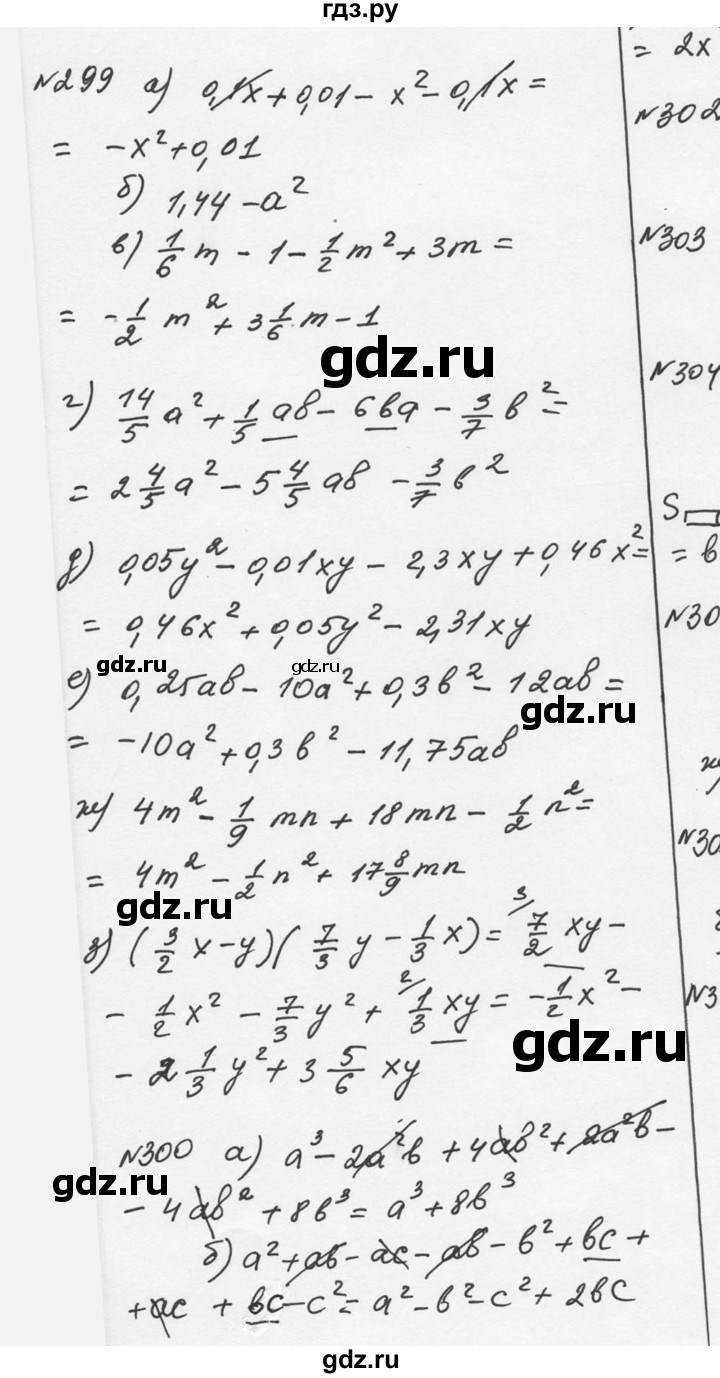 гдз.ру
№299 а) 0,1x + 0,01 - x² - 0,1x =
= -x² + 0,01
б) 1,44 - a²
в) 1/6 m - 1 - 1/2 m² + 3m =
= -1/2 m² + 3 1/6 m - 1
gdz.ru
г) 14/5 a² + 1/5 ab - 6ba - 3/7 b² =
= 2 4/5 a² - 5 4/5 ab - 3/7 b²
д) 0,05y² - 0,01xy - 2,3xy + 0,46x² =
= 0,46x² + 0,05y² - 2,31xy
gdz.ru
gdz.ru
е) 0,25ab - 10a² + 0,3b² - 12ab =
gdz.ru
= -10a² + 0,3b² - 11,75ab
ж) 4m² - 1/9 mn + 18mn - 1/2 n² =
= 4m² - 1/2 n² + 17 8/9 mn
gdz.ru
з) (3/2 x - y)(7/3 y - 1/3 x) = 3/ 7/2 xy -
- 1/2 x² - 7/3 y² + 2/ 1/3 xy = -1/2 x² -
gdz.ru
- 2 1/3 y² + 3 5/6 xy
№300 а) a³ - 2a²b + 4ab² + 2a²b -
gdz.ru
- 4ab² + 8b³ = a³ + 8b³
б) a² + ab - ac - ab - b² + bc +
+ ac + bc - c² = a² - b² - c² + 2bc
= 2x
№302
№303
№304
S
= b
№30
ж)
№30
№3
gdz.ru